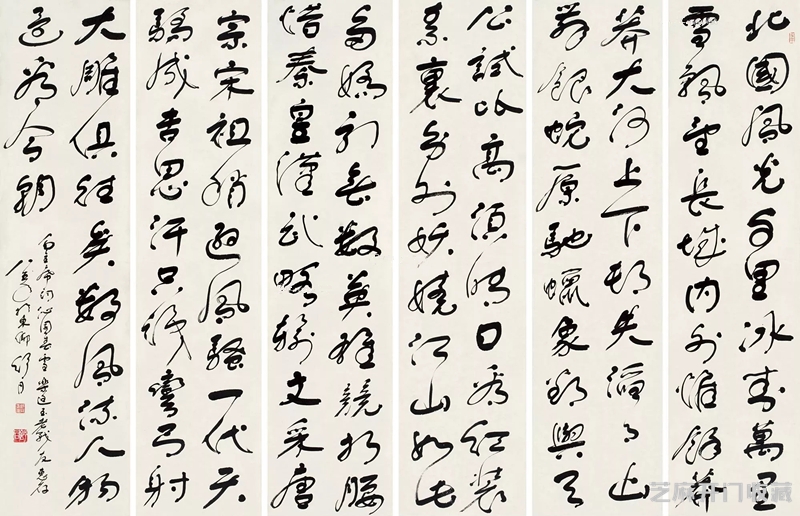 北國風光千里冰封萬里
雪飄望長城内外惟餘莽
莽大河上下頓失滔滔山
舞銀蛇原馳蠟象欲與天
公試比高須晴日看紅裝
素裹分外妖嬈江山如此
多嬌引無數英雄競折腰
惜秦皇漢武略輸文采唐
宗宋祖稍遜風騷一代天
驕成吉思汗只識彎弓射
大雕俱往矣數風流人物
還看今朝
毛主席詞沁園春雪
芝麻开门收藏